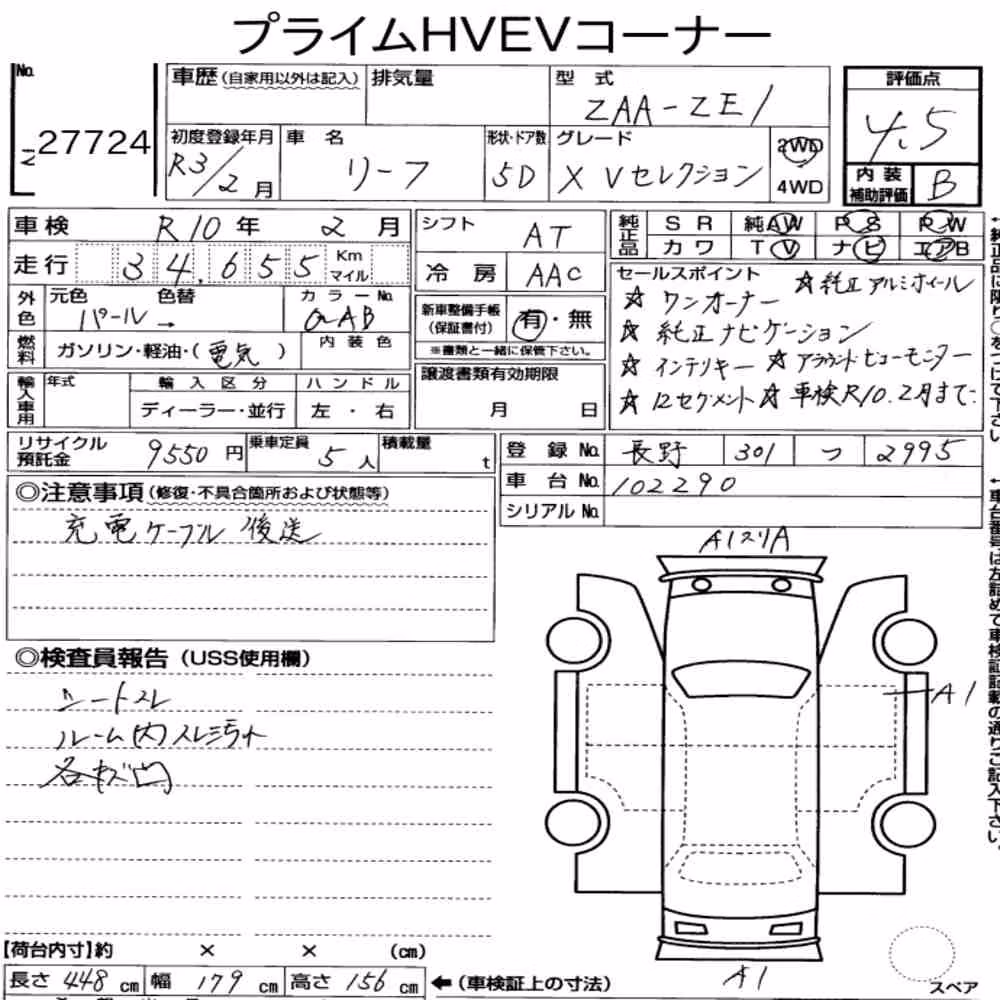 プライムHVEVコーナー
No. 27724
車歴(自家用以外は記入) 排気量 型式 ZAA-ZE1 評価点 4.5
初度登録年月 R3/2月 車名 リーフ 形状・ドア数 5D グレード X Vセレクション 2WD 4WD
内装補助評価 B
車検 R10年 2月 シフト AT
純正品 SR 純AW PS PW
カワ TV ナビ エアB
走行 34,655 Km マイル 冷房 AAC
外色 元色 パール → 色替 カラーNo. QAB
新車整備手帳(保証書付) 有・無
※書類と一緒に保管下さい。
燃料 ガソリン・軽油・(電気) 内装色
輸入車用 年式 輸入区分 ハンドル
ディーラー・並行 左・右
譲渡書類有効期限 月 日
セールスポイント ☆純正アルミホイール
☆ワンオーナー
☆純正ナビゲーション
☆インテリキー ☆アラウンドビューモニター
☆12セグメント ☆車検R10.2月まで
リサイクル預託金 9550円 乗車定員 5人 積載量 t
登録No. 長野 301 つ 2995
車台No. 102290
シリアルNo.
◎注意事項(修復・不具合箇所および状態等)
充電ケーブル後送
◎検査員報告(USS使用欄)
シートスレ
ルーム内スレ汚れ
各キズ凹
A1スリA
A1
A1
スペア
【荷台内寸】約 × × (cm)
長さ 448 cm 幅 179 cm 高さ 156 cm ←(車検証上の寸法)
←純正品に限り○をつけて下さい。
←車台番号は左詰めで車検証記載の通りご記入下さい。